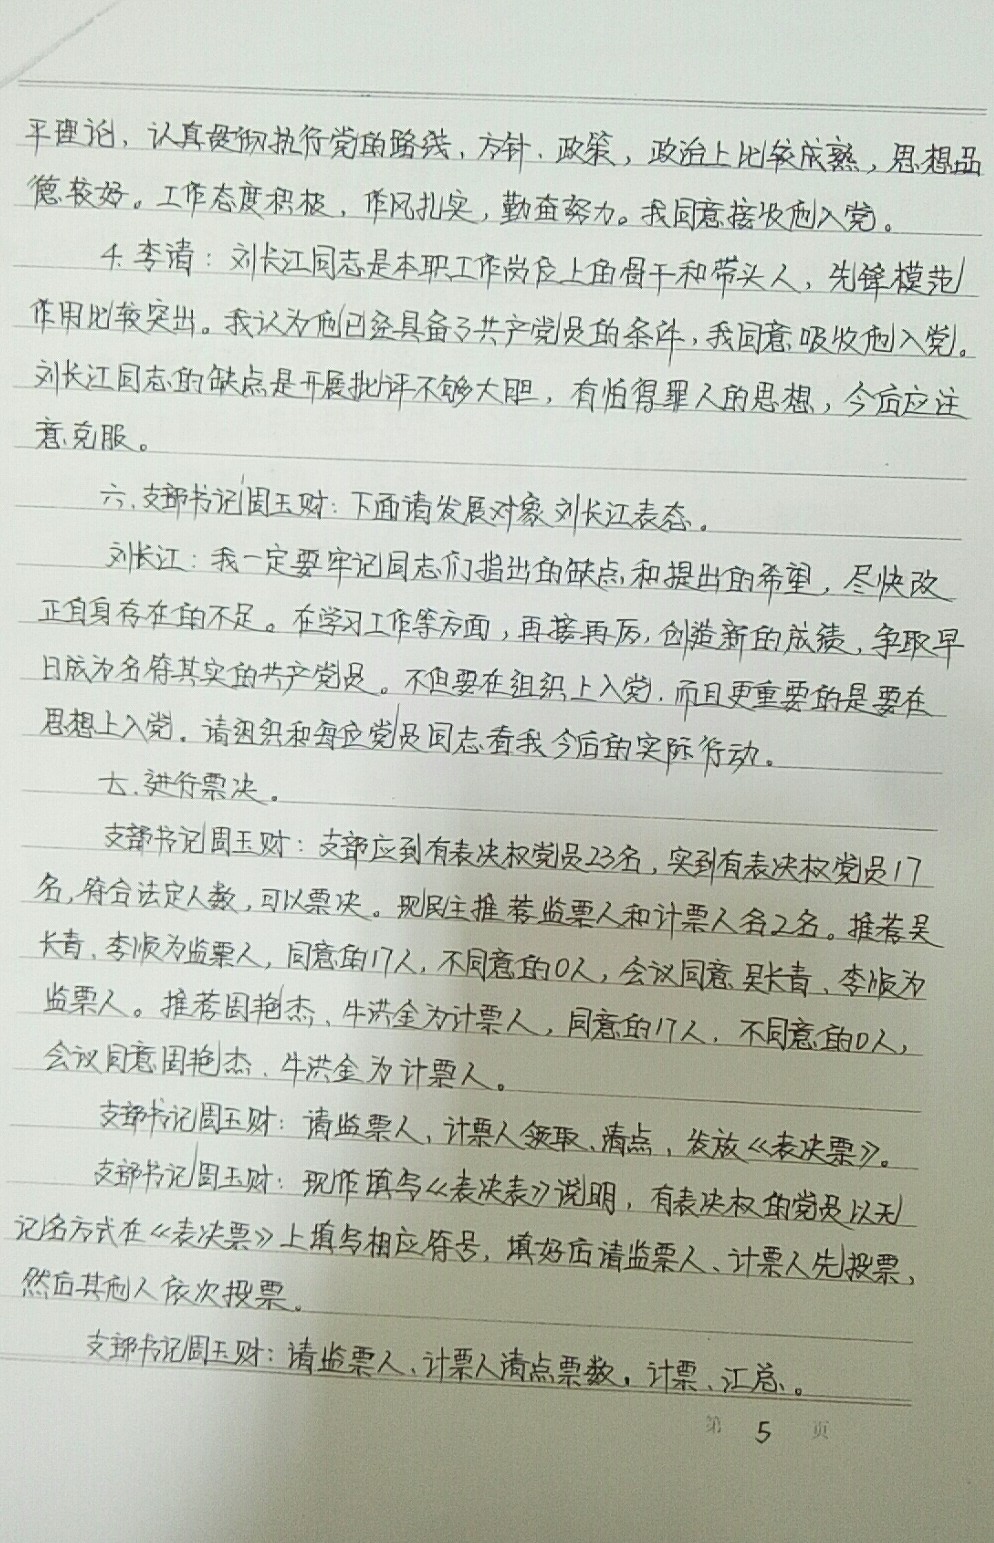 平理论，认真贯彻执行党的路线、方针、政策，政治上比较成熟，思想品
德较好。工作态度积极，作风扎实，勤奋努力。我同意接收他入党。
4.李清：刘长江同志是本职工作岗位上的骨干和带头人，先锋模范
作用比较突出。我认为他已经具备了共产党员的条件，我同意吸收他入党。
刘长江同志的缺点是开展批评不够大胆，有怕得罪人的思想，今后应注
意克服。
六、支部书记周玉财：下面请发展对象刘长江表态。
刘长江：我一定要牢记同志们指出的缺点和提出的希望，尽快改
正自身存在的不足。在学习工作等方面，再接再厉，创造新的成绩，争取早
日成为名符其实的共产党员。不但要在组织上入党，而且更重要的是要在
思想上入党。请组织和每位党员同志看我今后的实际行动。
七、进行票决。
支部书记周玉财：支部应到有表决权党员23名，实到有表决权党员17
名，符合法定人数，可以票决。现民主推荐监票人和计票人各2名。推荐吴
长青、李顺为监票人，同意的17人，不同意的0人，会议同意吴长青、李顺为
监票人。推荐田艳杰、牛洪金为计票人，同意的17人，不同意的0人，
会议同意田艳杰、牛洪金为计票人。
支部书记周玉财：请监票人、计票人领取、清点、发放《表决票》。
支部书记周玉财：现作填写《表决表》说明，有表决权的党员以无
记名方式在《表决票》上填写相应符号，填好后请监票人、计票人先投票，
然后其他人依次投票。
支部书记周玉财：请监票人、计票人清点票数，计票、汇总。
第 5 页